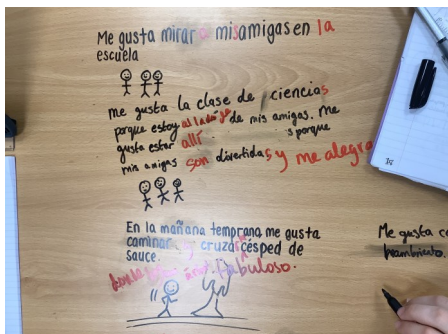 Me gusta mirar a mis amigas en la
escuela
me gusta la clase de ciencias
porque estoy al lado de de mis amigas. Me
gusta estar allí s porque
mis amigas son divertidas y me alegro
En la mañana temprana me gusta
caminar y cruza césped de
sauce.
fabuloso.
Me gusta
hambriento.